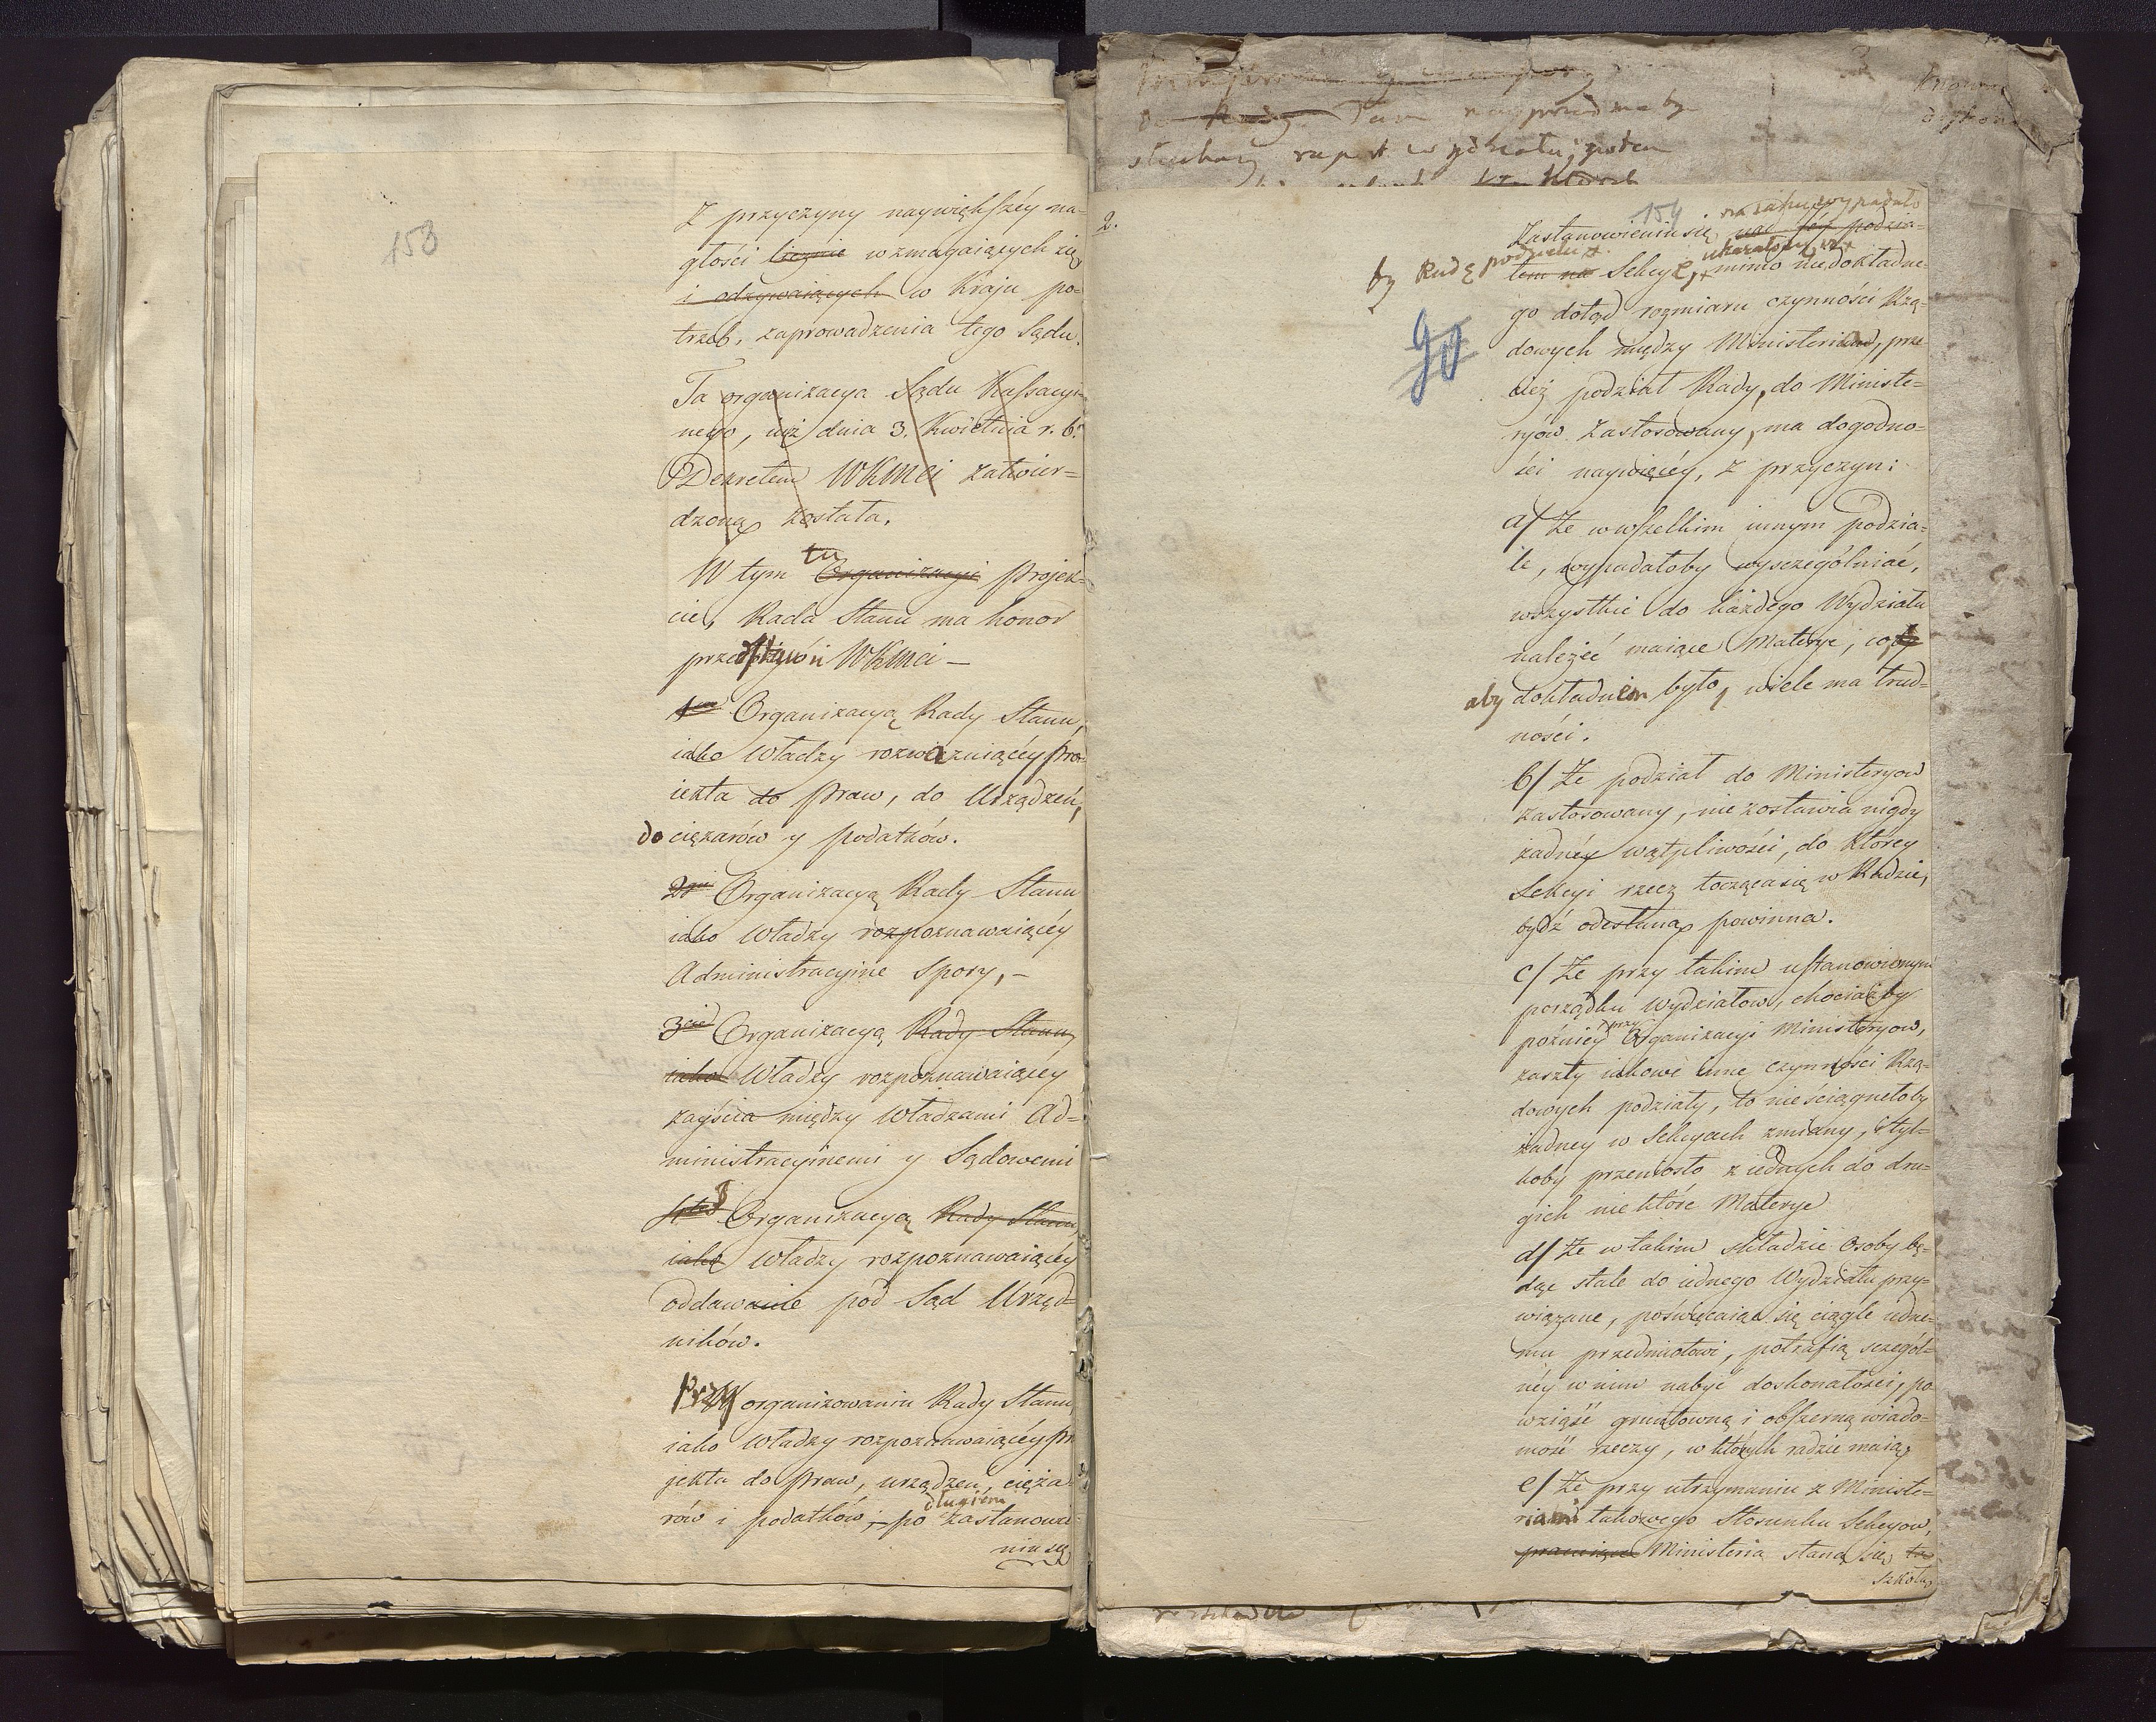 158
z przyczyny naywiększéy na-
głości licznie wzmagaiących się
i odzywaiących w Kraju po-
trzeb, zaprowadzenia tego Sądu.
Ta organizacya Sądu Kassacyi-
nego, iuż dnia 3. Kwietnia r. b.
Dekretem WKMci zatwier=
dzoną została.
W tym tu Organizacyi projek-
cie, Rada Stanu ma honor
przedstawić WKMci —
1mo Organizacyą Rady Stanu,
iako Władzy rozważaiącéy pro-
iekta do praw, do Urządzeń,
do ciężarów y podatków.
2do Organizacyą Rady Stanu
iako Władzy rozpoznawaiącéy
Administracyine Spory, —
3cie Organizacyą Rady Stanu,
iako Władzy rozpoznawaiącéy
zayścia między Władzami Ad-
ministracyinemi y Sądowemi
4to 3 Organizacyą Rady Stanu,
iako Władzy rozpoznawaiącéy
oddawanie pod Sąd Urzęd=
ników.
Przy organizowaniu Rady Stanu
iako Władzy rozpoznawaiącéy pro
jekta do praw, urządzeń, cięża-
rów i podatków, — po długiém zastanowie-
niu się
Tam
raport wydziału, potem
2.
154
na iaki wypadało
Zastanowieniu się, nad jéy podzia-
by Radę podzielić
łem na Sekcye, mimo niedokładne-
go dotąd rozmiaru czynności Rzą-
90
dowych między Ministeriami, prze
cież podział Rady, do Ministe=
ryów zastosowany, ma dogodno-
ści naywięcéy, z przyczyn:
a/ Że w wszelkim innym podzia-
le, wypadałoby wyszczególniać,
wszystkie do każdego Wydziału
należeć maiące Materye, co
aby dokładném było, wiele ma trud-
ności.
b/ Że podział do Ministeryow
zastosowany, nie zostawia nigdy
żadnéy wątpliwości, do którey
Sekcyi rzecz tocząca się w Radzie,
bydź odesłaną powinna.
c/ Że przy takim ustanowionym
porządku Wydziałow, chociażby
późniéy przy Organizacyi Ministeryow,
zaszły iakowe inne czynności Rzą-
dowych podziały, to nie ściągnełoby
żadney w Sekcyach zmiany, i tyl-
koby przeniosło z iednych do dru-
gich niektóre Materye
d/ Że w takim składzie Osoby bę-
dąc stale do iednego Wydziału przy-
wiązane, poświęcaiąc się ciągle iedne-
mu przedmiotowi, potrafią szczegól-
néy w nim nabyć doskonałości, po
wziąść gruntowną i obszerną wiado-
mość rzeczy, w których radzić maią,
e/ Że przy utrzymaniu z Ministe-
riami takowego Stosunku Sekcyow,
Ministeria staną się
szkołą